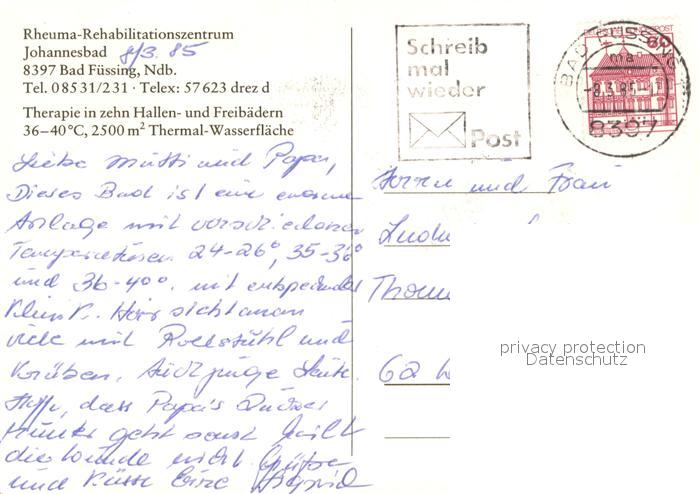 Rheuma-Rehabilitationszentrum
Johannesbad 8/3. 85
8397 Bad Füssing, Ndb.
Tel. 08531/231 · Telex: 57623 drez d
Therapie in zehn Hallen- und Freibädern
36–40°C, 2500 m² Thermal-Wasserfläche
Schreib
mal
wieder
Post
BAD FÜSSING
ma
-8.3.85-17
8397
60
Liebe Mutti und Papa,
Dieses Bad ist eine enorme
Anlage mit verschiedenen
Temperaturen 24-26°, 35-36°
und 36-40°. mit entsprechender
Klinik. Hier sieht man
viele mit Rollstuhl und
Krücken. Auch junge Leute.
Hoffe, dass Papa's Zucker
runter geht sonst heilt
die Wunde nicht. Grüsse
und Küsse Eure
Herrn und Frau
Ludw
Thom
62 W
privacy protection
Datenschutz